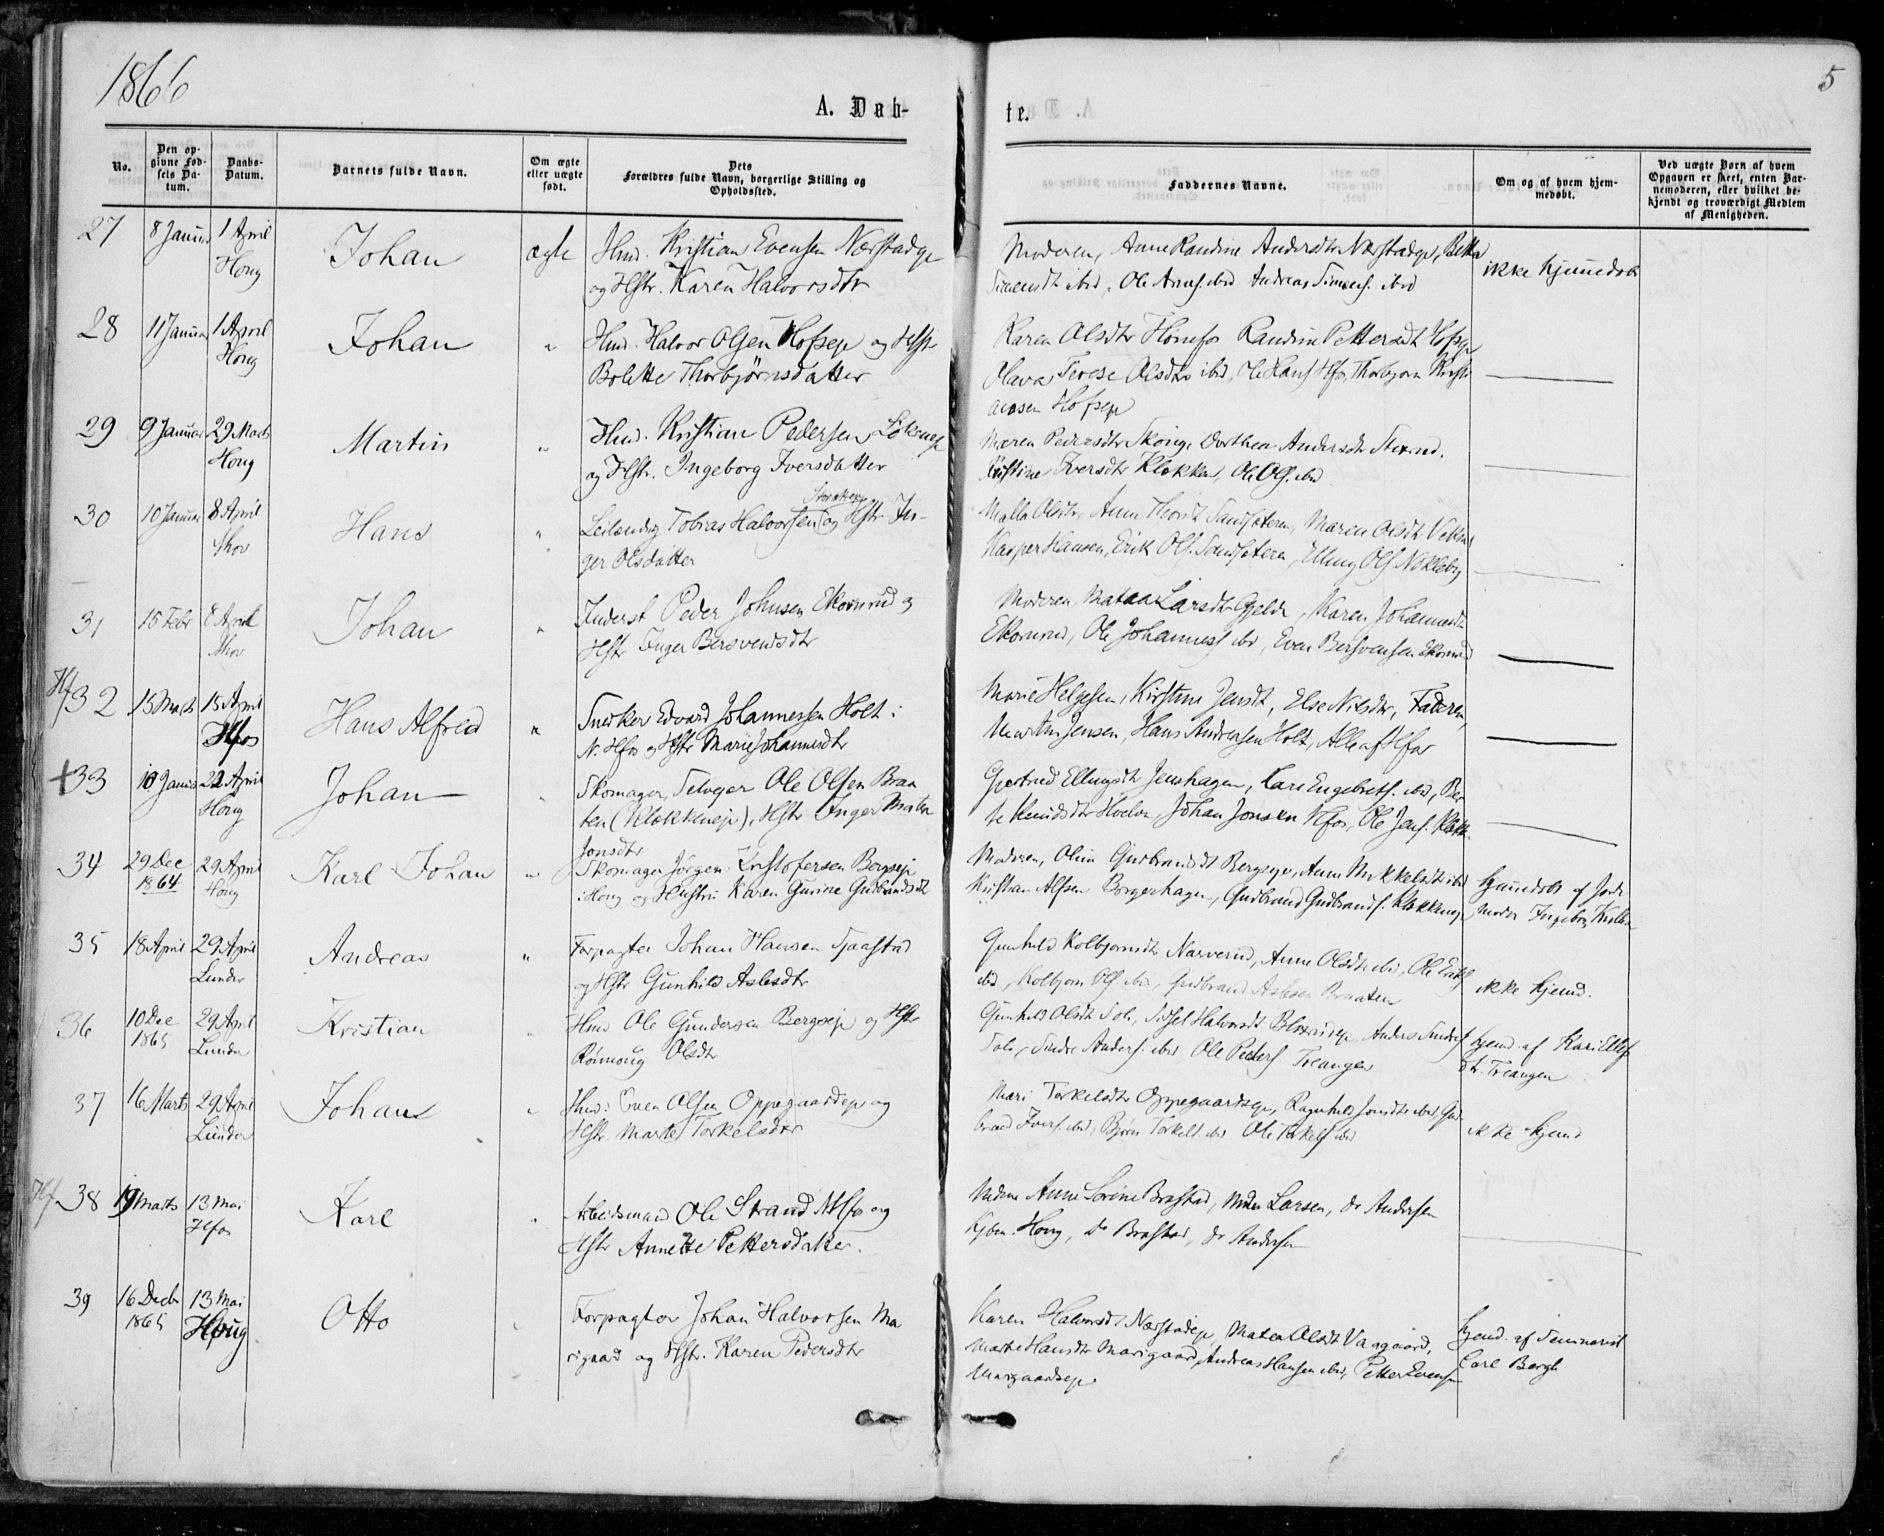 1866
5
A. Dab-
te.
No.
Den op-
givne Fød-
sels Da-
tum.
Daabs-
Datum.
Barnets fulde Navn.
Om ægte
eller uægte
født.
Dets
Forældres fulde Navn, borgerlige Stilling og
Opholdssted.
Faddernes Navne.
Om og af hvem hjem-
medøbt.
Ved uægte Børn af hvem
Opgaven er skeet, enten Bar-
nemoderen, eller hvilket be-
kjendt og troværdigt Medlem
af Menigheden.
27 8 Januar 1 April Johan ægte Hmd. Kristian Evensen Nærstadeje
Houg og Hstr. Karen Halvorsdtr
Moderen, Anne Randine Andersdtr Nærstadeje,
Simensdt ibid, Ole Arnes. ibid Andreas Simens. ibid
ikke hjemmedøbt
28 11 Januar 1 April Johan " Hmd. Halvor Olsen Hofseje og Hstr
Houg Bolette Thorbjørnsdatter
Karen Olsdtr Hönefos Randine Pettersdt Hofseje
Olava Terese Olsdtr ibid, Thorbjørn Kristi
ansen Hofseje
29 9 Januar 29 Marts Martin " Hmd. Kristian Pedersen
Houg og Hstr. Ingeborg Iversdatter
Maren Pedersdtr Dorthea Andersdtr
Kristine Iversdtr Klækken, Ole Ols. ibid
30 10 Januar 8 April Hans " Leilending Tobias Halvorsen og Hstr In-
Skov ger Olsdatter
Olsdtr, Anne Maren Olsdt
Kasper Hansen, Erik Ols. Elling Ols. Nökleby
31 15 Febr 8 April Johan " Inderst Peder Johnsen Ekornrud og
Skov Hstr Inger Bersvendsdtr
Moderen, Larsdtr Gjelde, Karen Johannesdt
Ekornrud, Ole Johanness. ibid, Even Bersvensen Ekornrud
Hf 32 13 Marts 15 April Hans Alfred " Snedker Edvard Johannessen Holt i
Hfos N. Hfos og Hstr Marie Johannesdtr
Marie Helgesen, Kirstine Jensdt, Else Nilsdtr, Faderen,
Martin Jensen, Hans Andreasen Holt, Alle af Hfos
+33 10 Januar 22 April Johan " Skomager, Selvejer Ole Olsen Braa
Houg ten (Klækkeneje), Hstr Inger Marten
Jonsdtr
Gjertrud Ellingsdt Jenshagen, Kari Engebrets. ibid, Ber
te Johan Jonsen Hfos, Ole Jens.
34 29 Dec 29 April Karl Johan " Skomager Jörgen Kristofersen Bergseje
1864 Houg i Houg og Hustru Karen Gurine Gudbrandsdt
Moderen, Oline Gudbrandsdt Bergseje, Anne Mikkelsdt ibid
Kristian Alfsen Borgerhagen, Gudbrand Gudbrands. Klækkeneje
hjemmedøbt af Jorde
moder Ingeborg
35 18 April 29 April Andreas " Forpagter Johan Hansen
Lunder og Hstr Gunhild Aslesdtr
Gunhild Kolbjørnsdt Narverud, Anne Olsdt ibid,
ibid, Kolbjørn Ols. ibid, Gudbrand Aslesen Braaten
ikke hjemd.
36 10 Dec 29 April Kristian " Hmd Ole Gundersen Bergseje og Hstr
1865 Lunder Rönnoug Olsdtr
Gunhild Olsdt Solie, Sidsel Halvorsdt
Anders. ibid Ole Peders. Treangen
hjemd. af Kari Ellefs
dt. Treangen
37 16 Marts 29 April Johan " Hmd: Even Olsen Oppegaardeje og
Lunder Hstr Marte Torkelsdtr
Mari Torkelsdtr Oppegaardseje, Ragnhild Jonsdtr ibid, Gud
brand Ivers. ibid, Bjørn Torkels. ibid Ole Torkels. ibid
ikke hjemd
Hf 38 19 Marts 13 Mai Karl " Arbeidsmand Ole Strand N. Hfos og
Hfos Hstr Annette Pettersdatter.
Madm Anne Sørine Brastad, Madm Larsen, Do Andersen
Kjbm. Houg, Do Brastad, Do Andersen
39 16 Decb 13 Mai Otto " Forpagter Johan Halvorsen Ma
1865 Houg rigaard og Hstr. Karen Pedersdtr
Karen Halvorsdt Nærstadeje, Matea Olsdt Vaagaard,
Marte Hansdtr Marigaard, Andreas Hansen ibid, Petter Evensen
Marigaardseje.
hjemd. af Seminarist
Carl Bergh